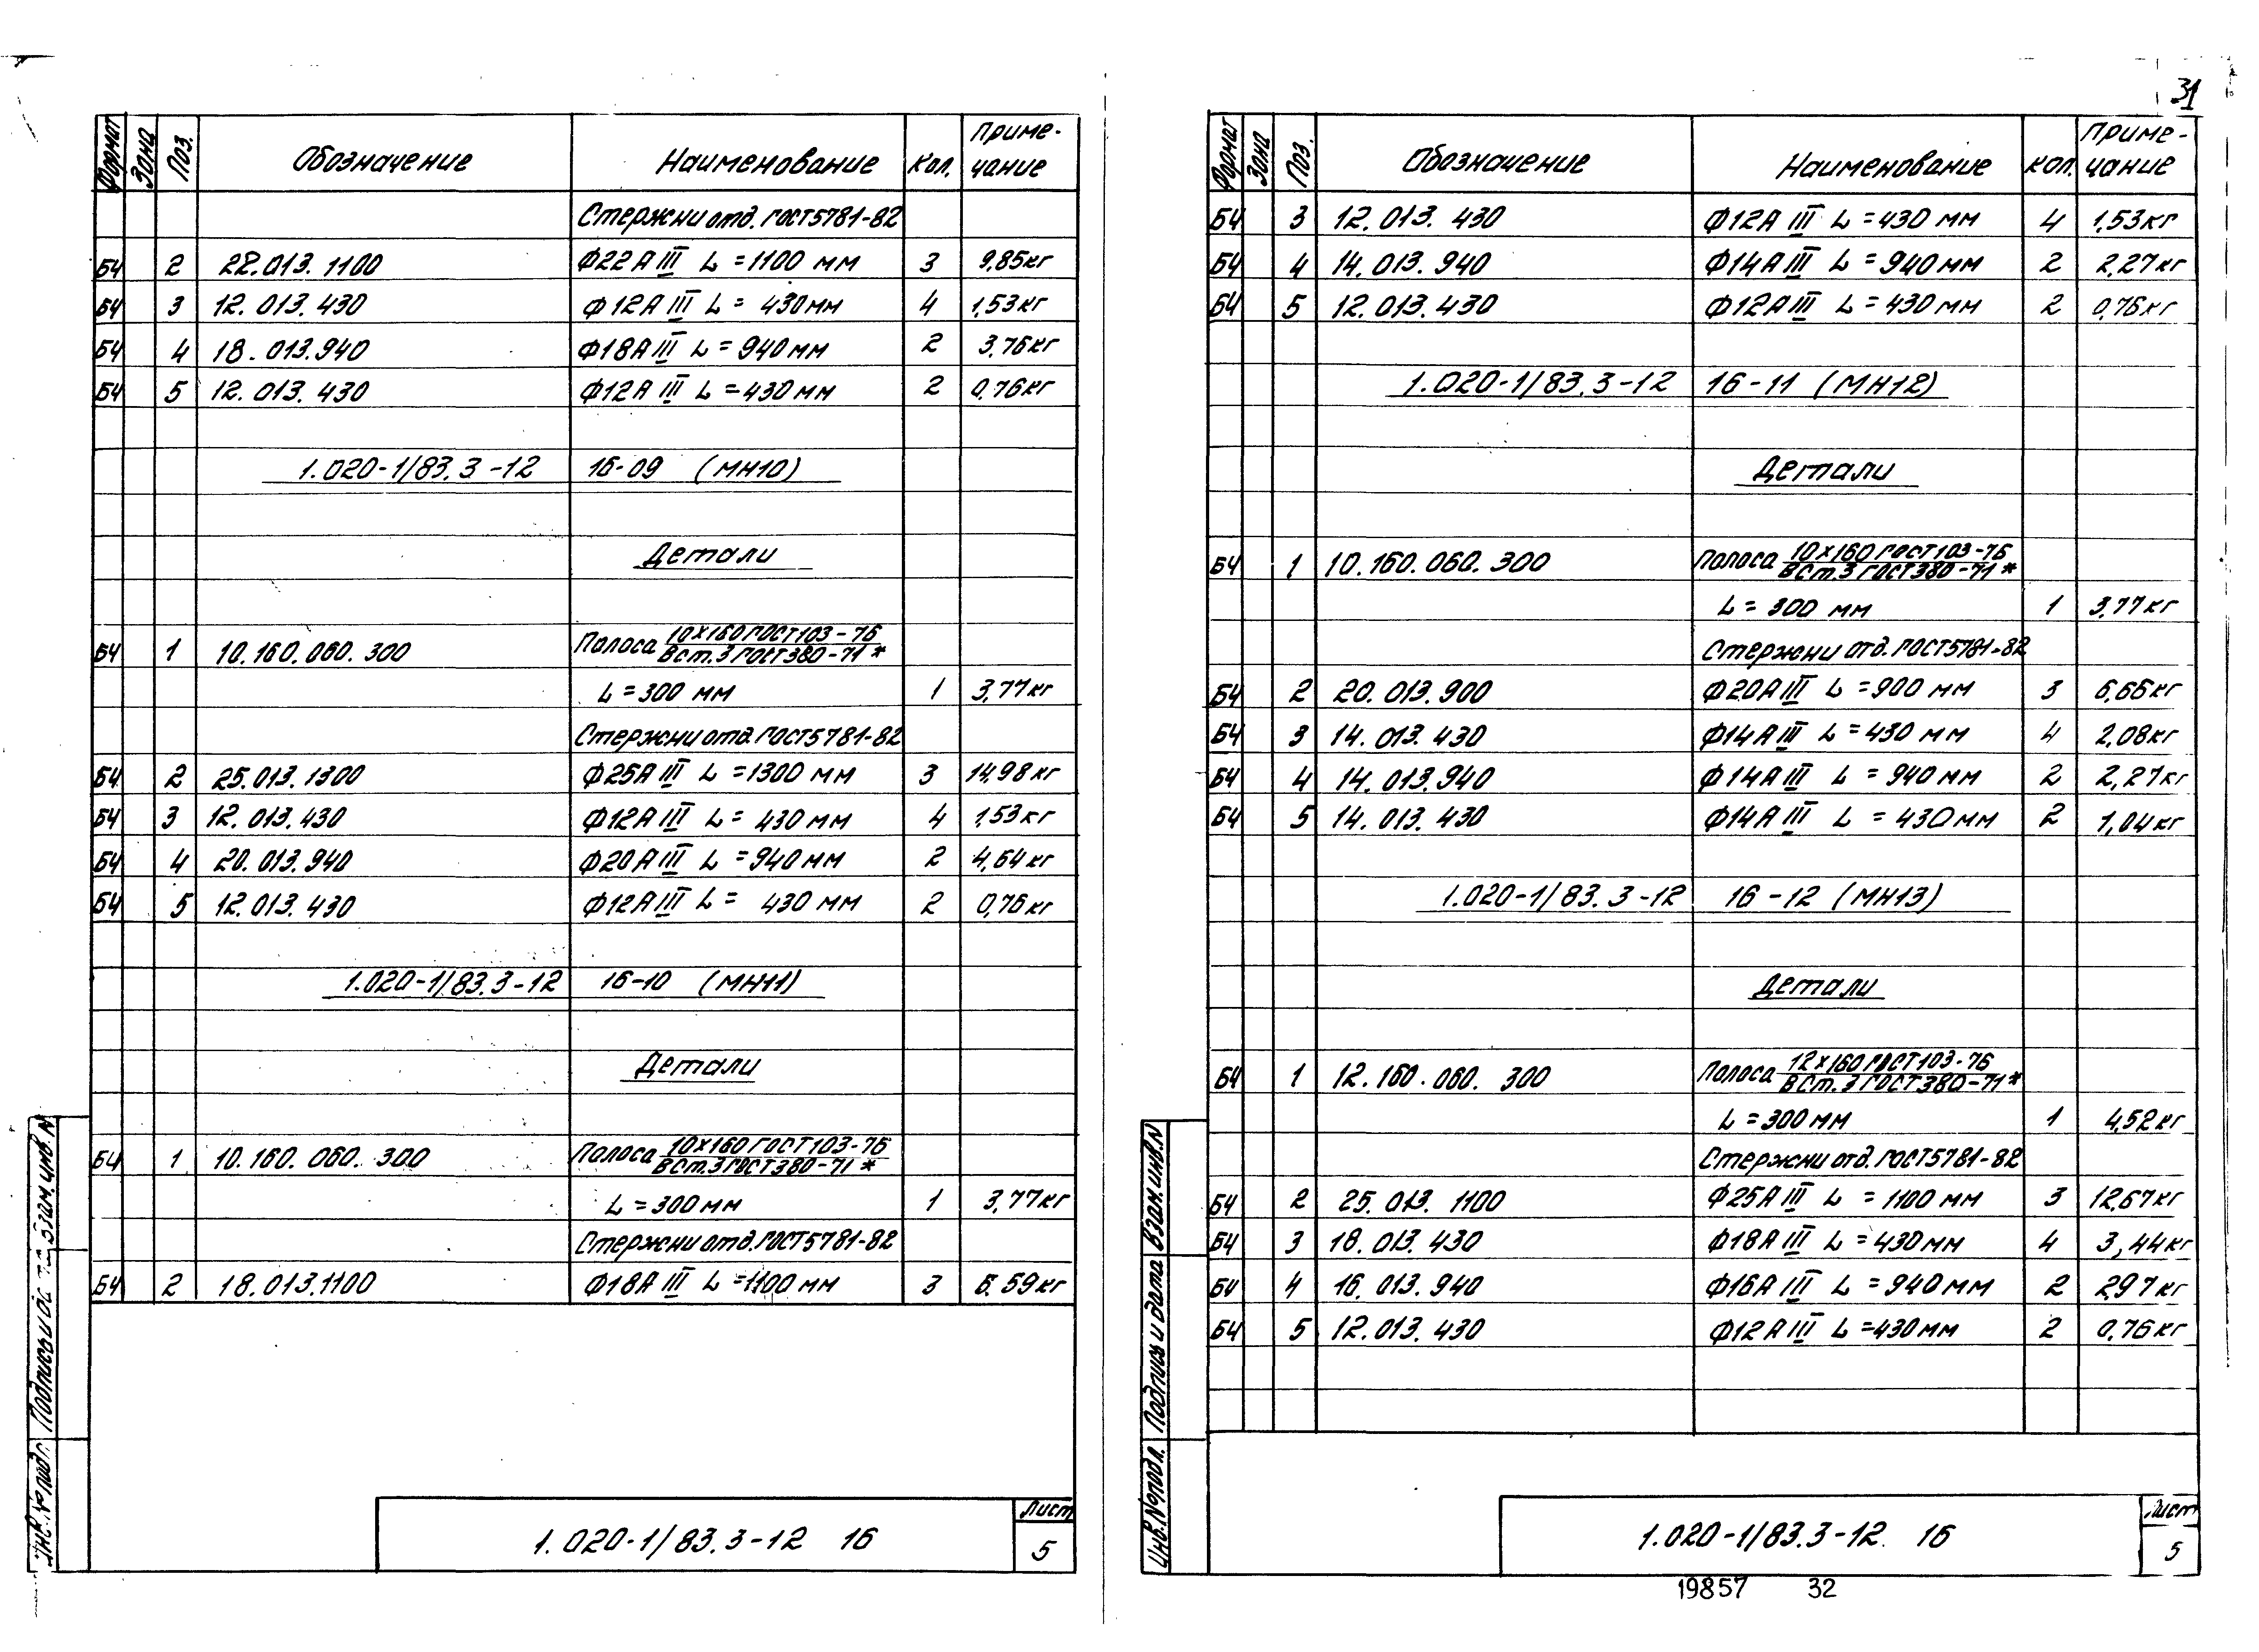 31
Формат Зона Поз. Обозначение Наименование Кол. Приме-чание
Стержни отд. ГОСТ 5781-82
БЧ 2 22.013.1100 Ф22АIII L=1100 мм 3 9,85кг
БЧ 3 12.013.430 Ф12АIII L=430мм 4 1,53кг
БЧ 4 18.013.940 Ф18АIII L=940мм 2 3,76кг
БЧ 5 12.013.430 Ф12АIII L=430мм 2 0,76кг
1.020-1/83.3-12 16-09 (МН10)
Детали
БЧ 1 10.160.060.300 Полоса 10х160 ГОСТ 103-76 / ВСт.3 ГОСТ 380-71*
L=300 мм 1 3,77кг
Стержни отд. ГОСТ 5781-82
БЧ 2 25.013.1300 Ф25АIII L=1300 мм 3 14,98кг
БЧ 3 12.013.430 Ф12АIII L=430мм 4 1,53кг
БЧ 4 20.013.940 Ф20АIII L=940мм 2 4,64кг
БЧ 5 12.013.430 Ф12АIII L=430мм 2 0,76кг
1.020-1/83.3-12 16-10 (МН11)
Детали
БЧ 1 10.160.060.300 Полоса 10х160 ГОСТ 103-76 / ВСт.3 ГОСТ 380-71*
L=300мм 1 3,77кг
Стержни отд. ГОСТ 5781-82
БЧ 2 18.013.1100 Ф18АIII L=1100мм 3 6,59кг
Инв.№подл. Подпись и Взам.инв.N
1.020-1/83.3-12 16
Лист
5
Формат Зона Поз. Обозначение Наименование Кол. Приме-чание
БЧ 3 12.013.430 Ф12АIII L=430мм 4 1,53кг
БЧ 4 14.013.940 Ф14АIII L=940мм 2 2,27кг
БЧ 5 12.013.430 Ф12АIII L=430мм 2 0,76кг
1.020-1/83.3-12 16-11 (МН12)
Детали
БЧ 1 10.160.060.300 Полоса 10х160 ГОСТ 103-76 / ВСт.3 ГОСТ 380-71*
L=300 мм 1 3,77кг
Стержни отд. ГОСТ 5781-82
БЧ 2 20.013.900 Ф20АIII L=900 мм 3 6,66кг
БЧ 3 14.013.430 Ф14АIII L=430 мм 4 2,08кг
БЧ 4 14.013.940 Ф14АIII L=940мм 2 2,27кг
БЧ 5 14.013.430 Ф14АIII L=430мм 2 1,04кг
1.020-1/83.3-12 16-12 (МН13)
Детали
БЧ 1 12.160.060.300 Полоса 12х160 ГОСТ 103-76 / ВСт.3 ГОСТ 380-71*
L=300мм 1 4,52кг
Стержни отд. ГОСТ 5781-82
БЧ 2 25.013.1100 Ф25АIII L=1100мм 3 12,67кг
БЧ 3 18.013.430 Ф18АIII L=430мм 4 3,44кг
БЧ 4 16.013.940 Ф16АIII L=940мм 2 2,97кг
БЧ 5 12.013.430 Ф12АIII L=430мм 2 0,76кг
Инв.№подл. Подпись и дата Взам.инв.N
1.020-1/83.3-12 16
Лист
5
19857 32